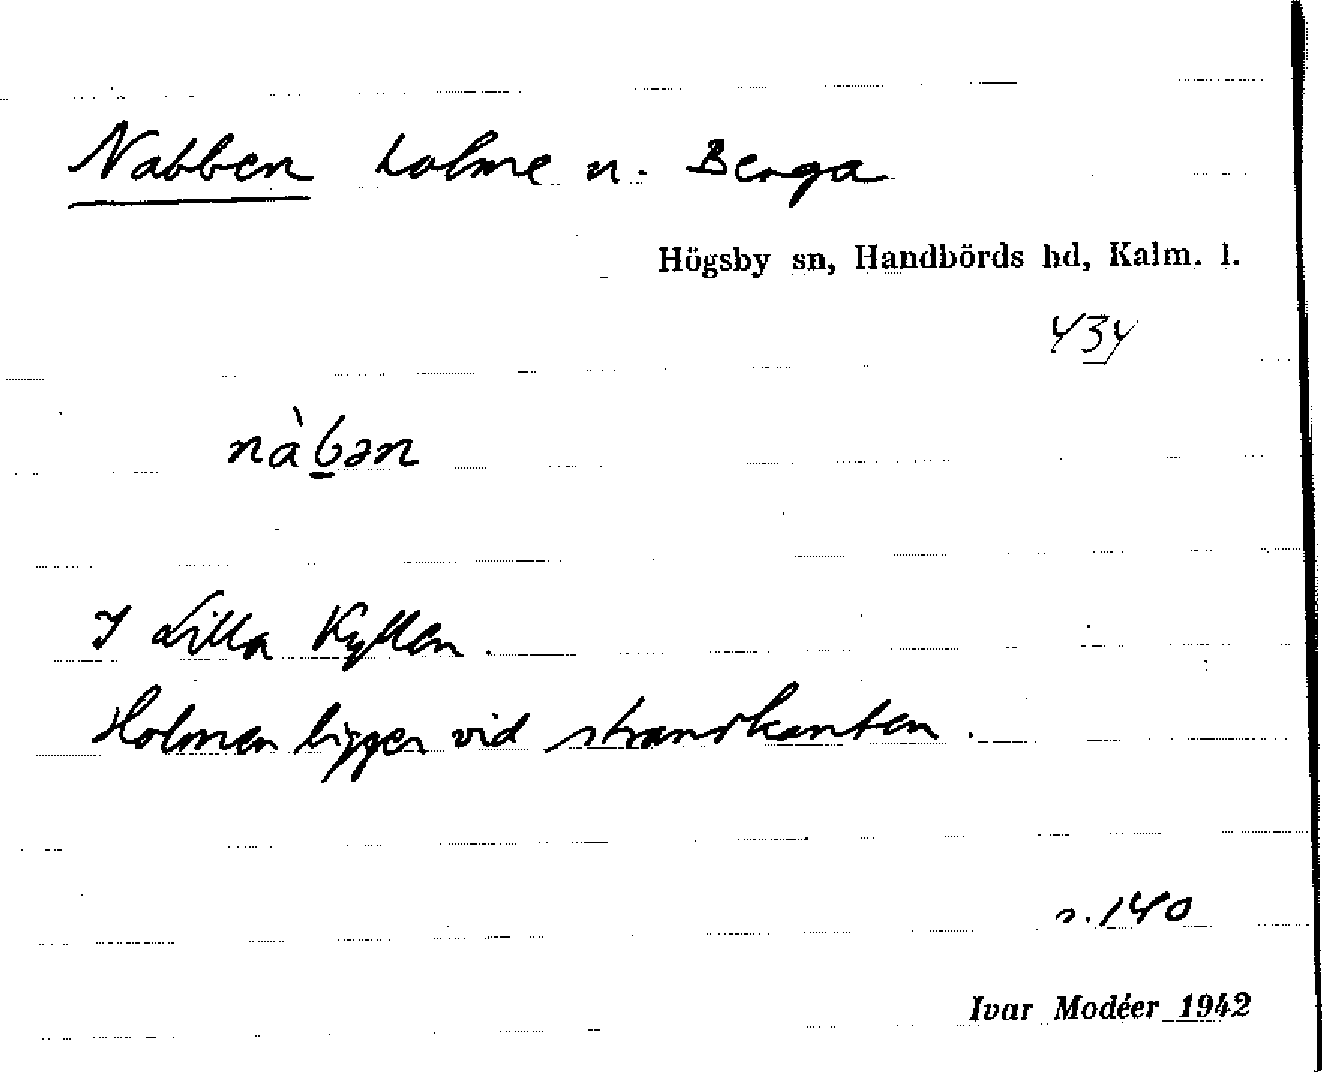 Nabben holme n. Berga
Högsby sn, Handbörds hd, Kalm. l.
434
nàb̲ən
I Lilla Kyllen.
Holmen ligger vid strandkanten.
s. 140
Ivar Modéer 1942